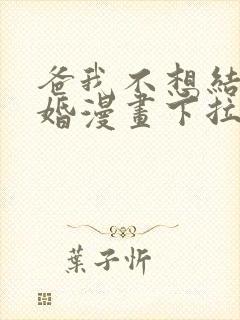 爸我不想結
婚漫畫下拉
葉子忻